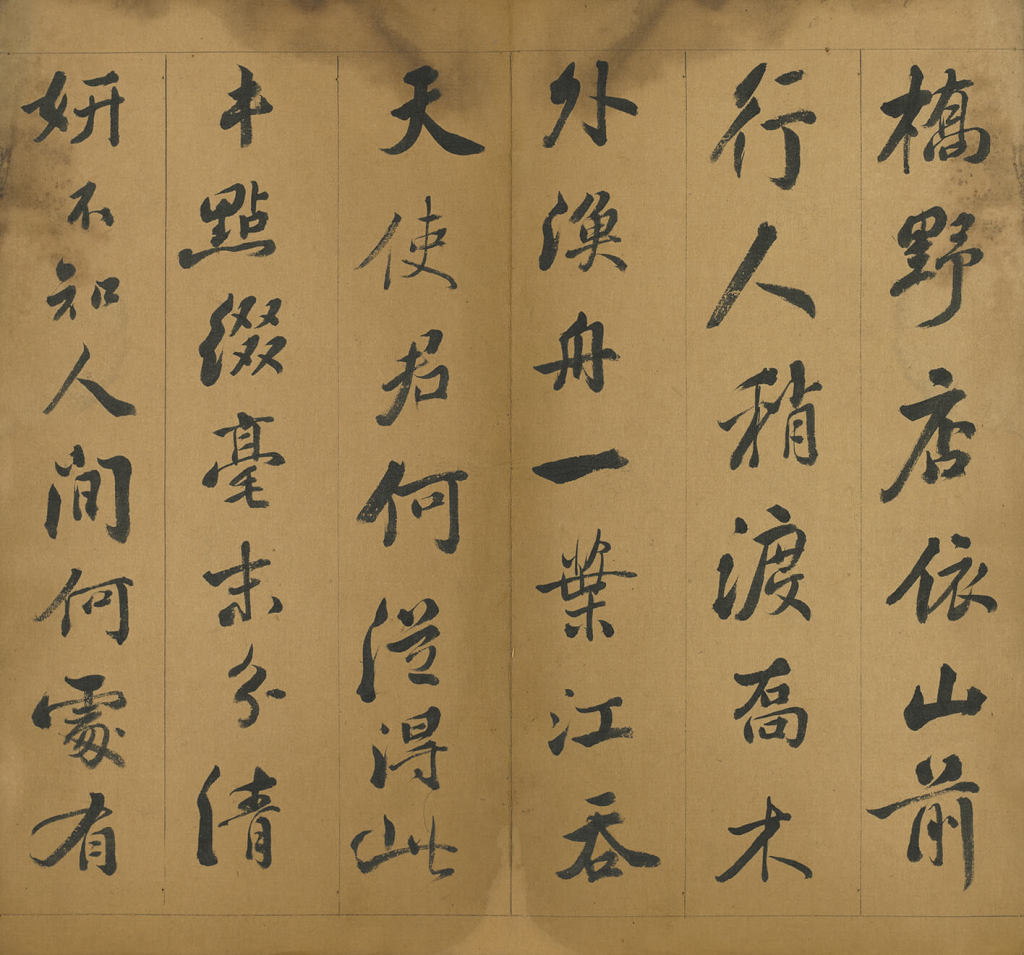 橋野店依山前
行人稍渡喬木
外漁舟一葉江吞
天使君何從得此
本點綴毫末分清
妍不知人間何處有